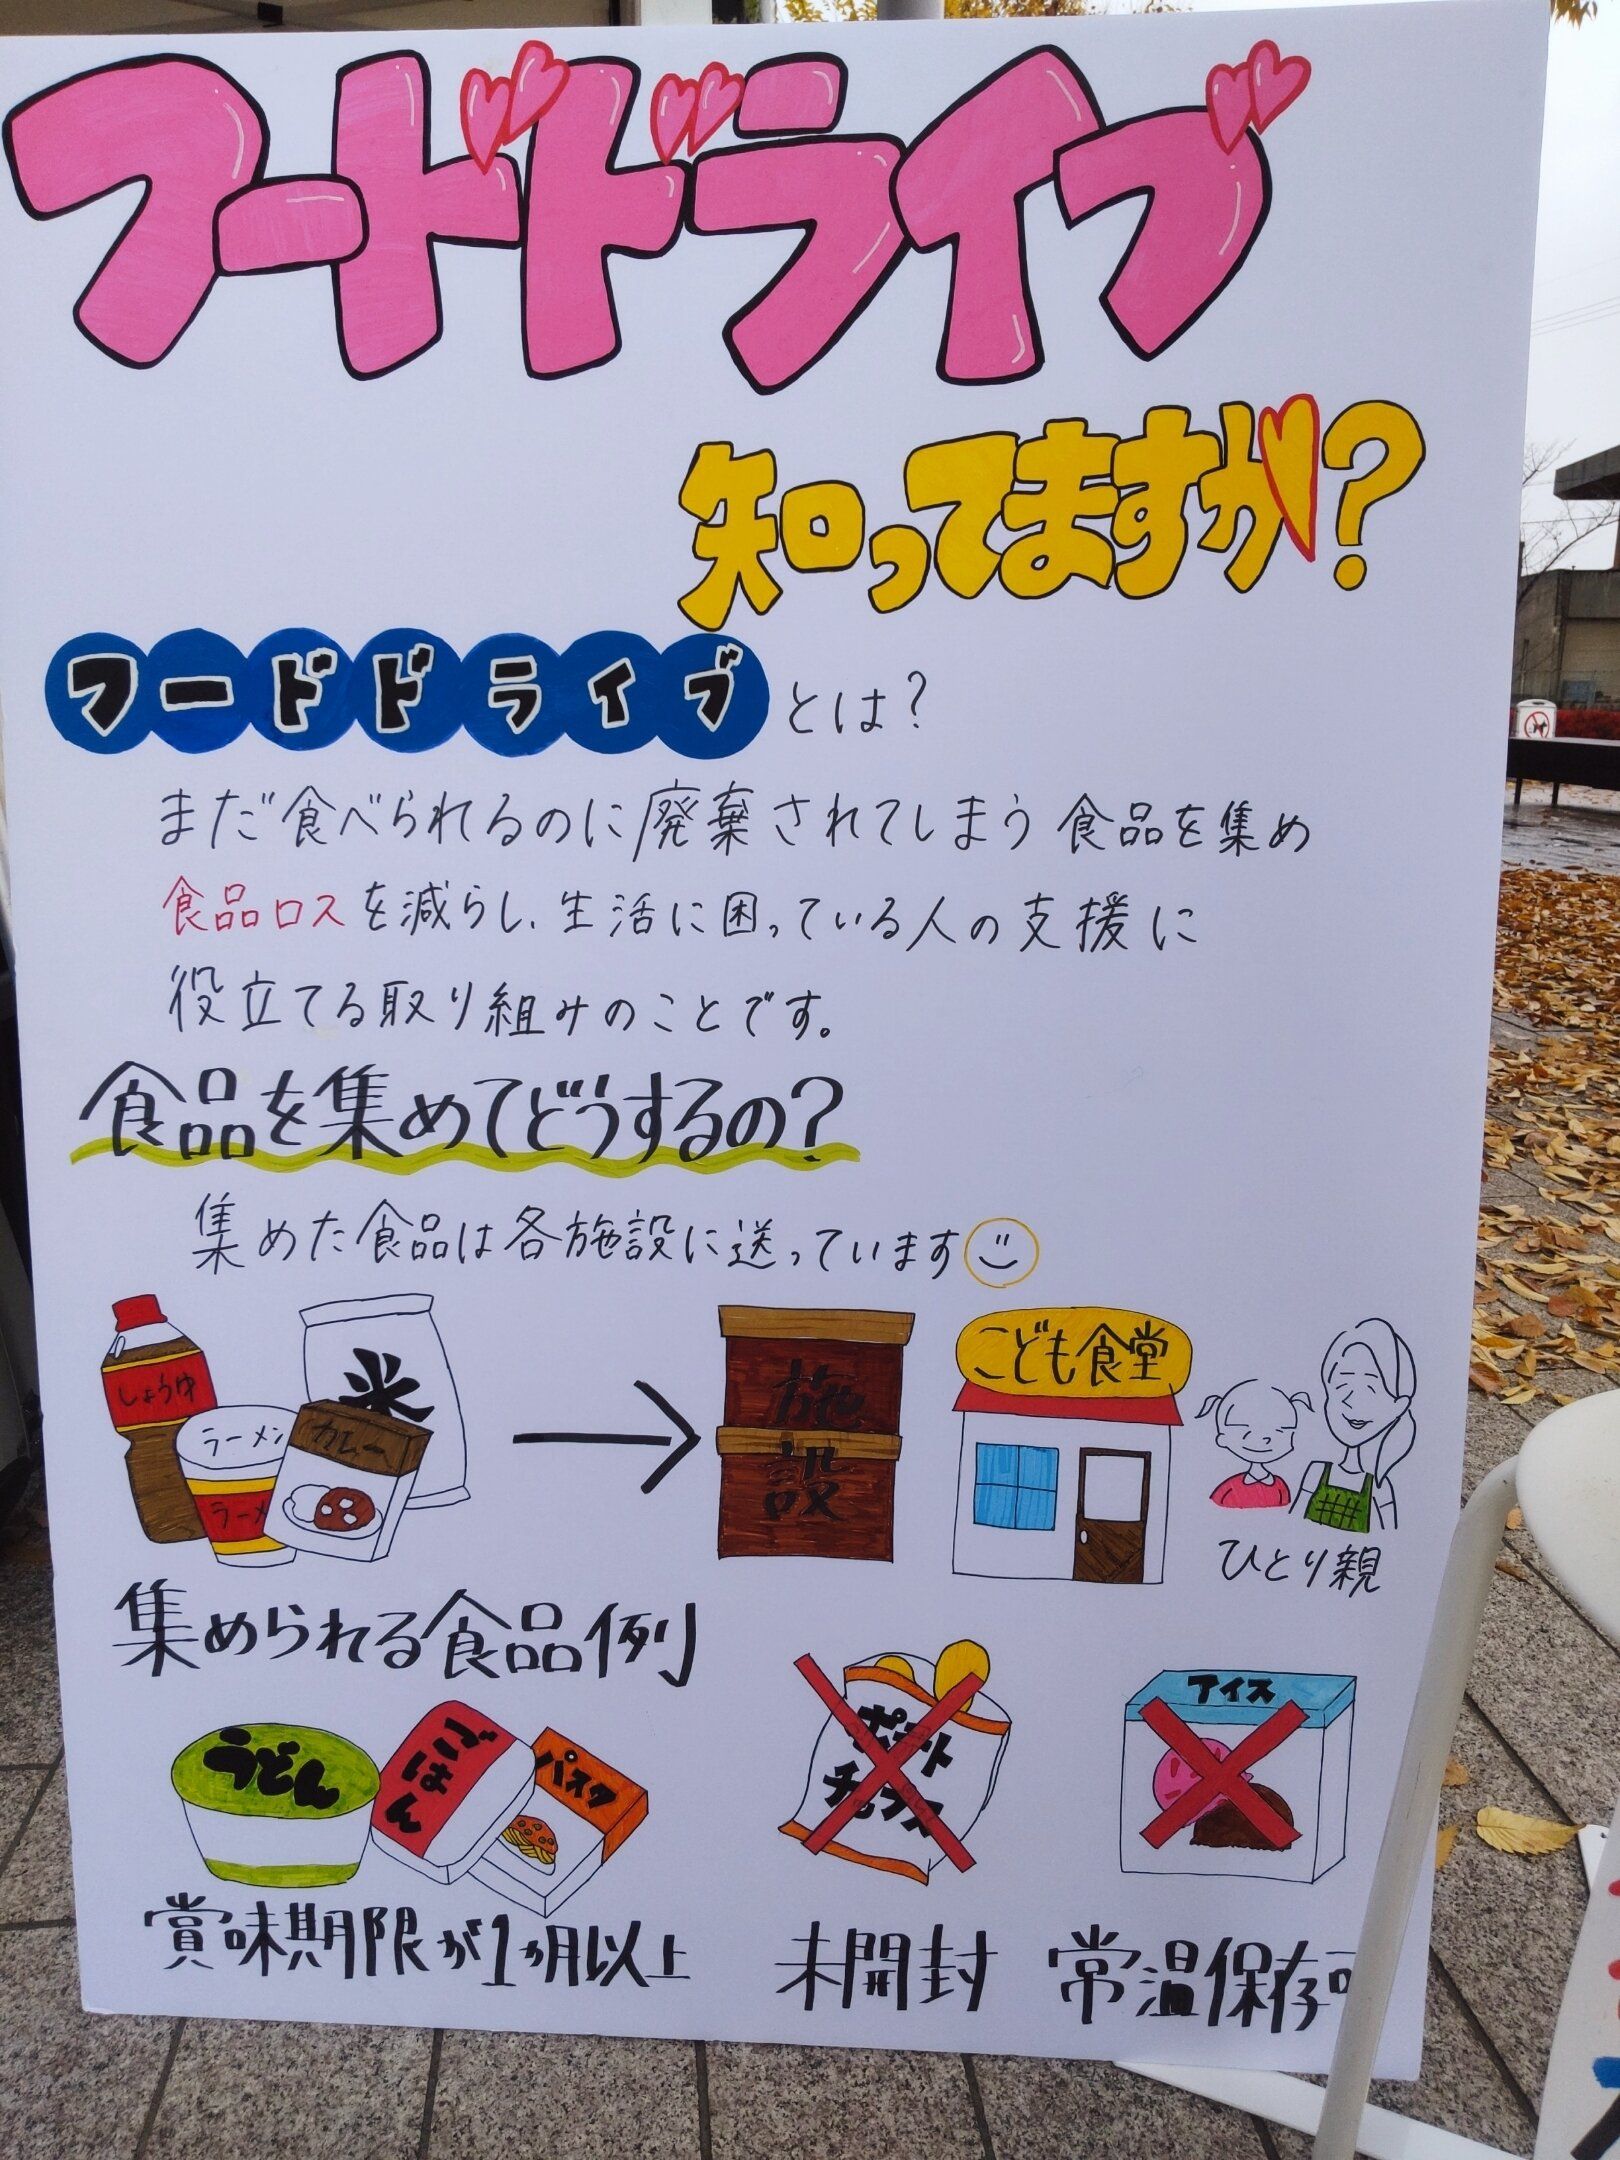 フードドライブ
知ってますか?
フードドライブとは?
まだ食べられるのに廃棄されてしまう食品を集め
食品ロスを減らし、生活に困っている人の支援に
役立てる取り組みのことです。
食品を集めてどうするの?
集めた食品は各施設に送っています
しょうゆ
ラーメン
ラーメ
カレー
米
施設
こども食堂
ひとり親
集められる食品例
うどん
ごはん
パスタ
ポテト
チップス
アイス
賞味期限が1ヵ月以上
未開封
常温保存可